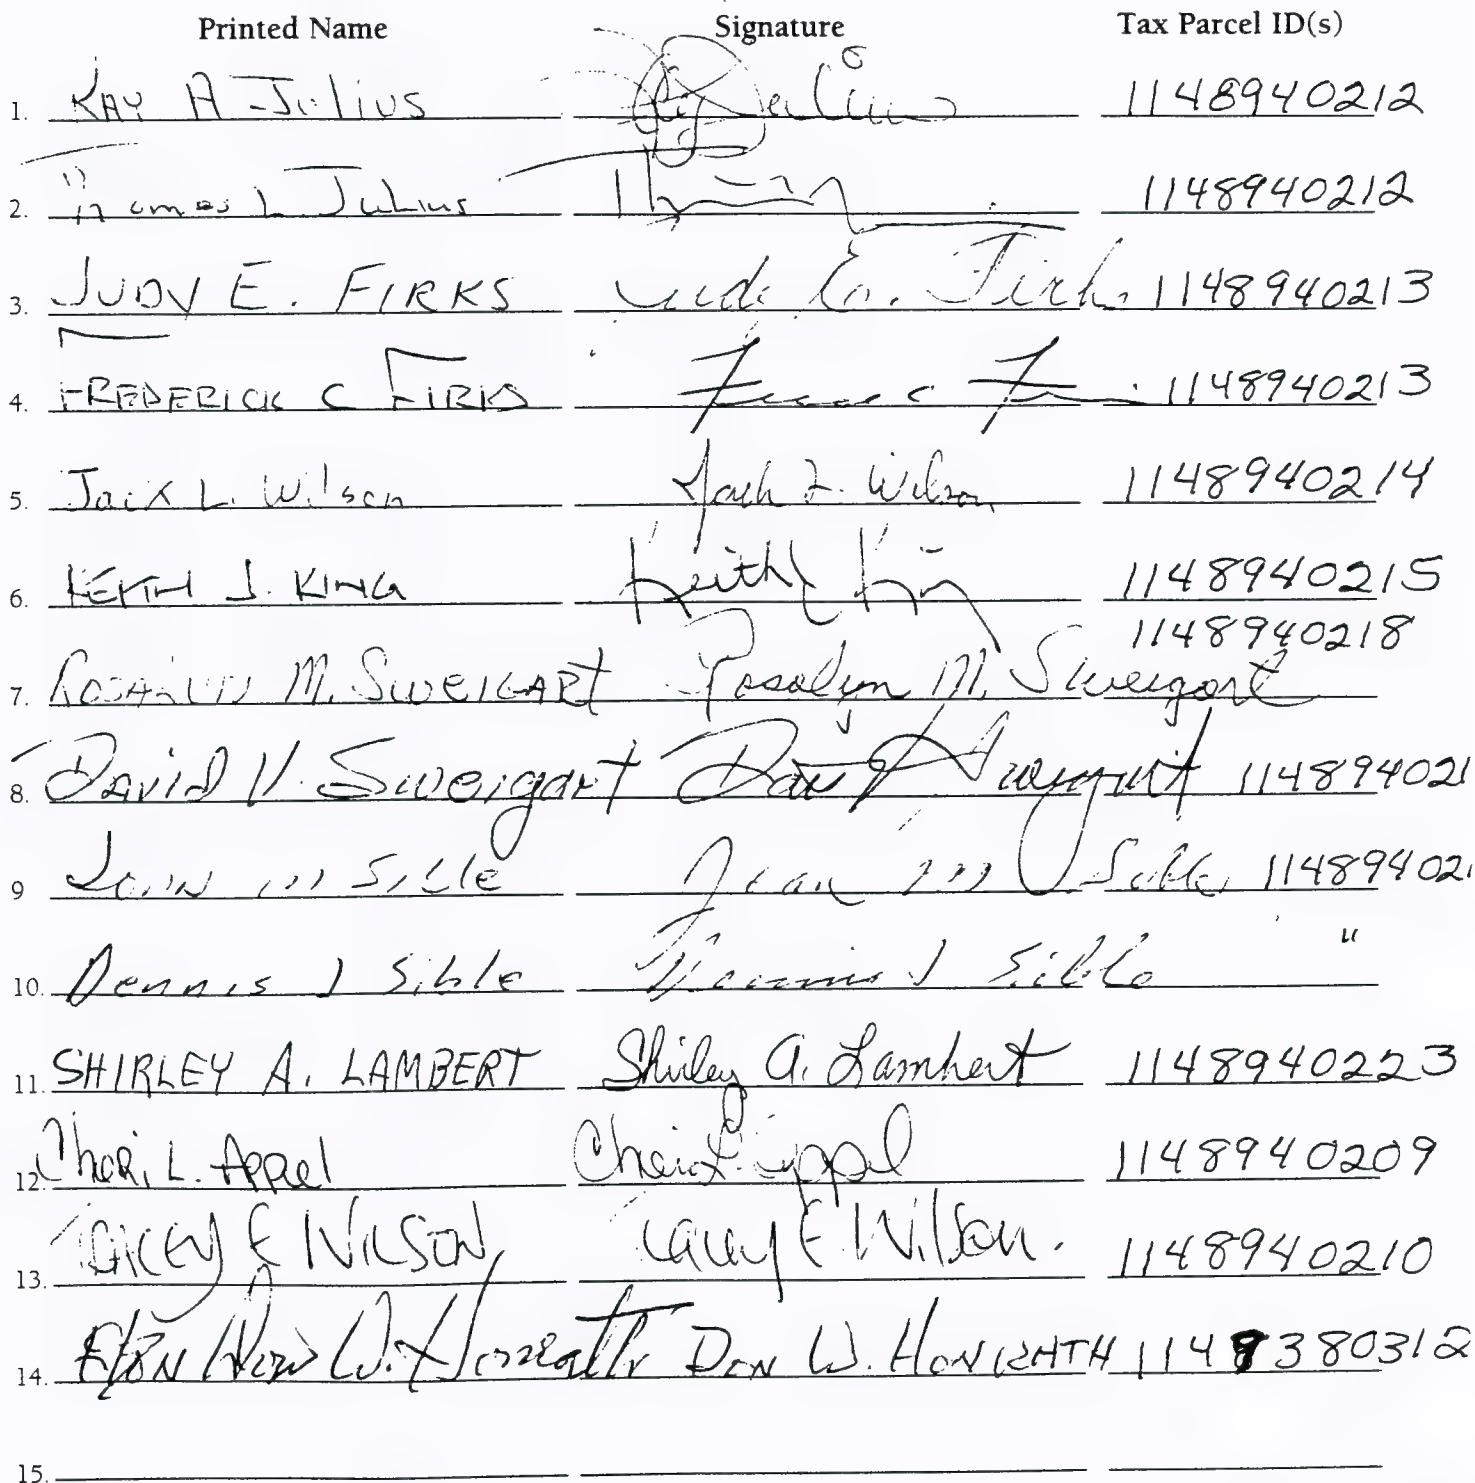 Printed Name Signature Tax Parcel ID(s)
1. KAY A Julius 1148940212
2. Thomas L Julius 1148940212
3. JUDY E. FIRKS Judy E. Firks 1148940213
4. FREDERICK C FIRKS 1148940213
5. Jack L. Wilson Jack L. Wilson 1148940214
6. KEITH J. KING Keith J King 1148940215
1148940218
7. ROSALYN M. SWEIGART Rosalyn M. Sweigart
8. David V. Sweigart 114894021
9 M Sible Jean M Sible 114894021
10. Dennis J Sible Dennis J Sible "
11. SHIRLEY A. LAMBERT Shirley A. Lambert 1148940223
12. Cheri L. Appel Cheri L. Appel 1148940209
13. TRACEY E WILSON Tracey E Wilson. 1148940210
14. Don W. DON W. 1149380312
15.